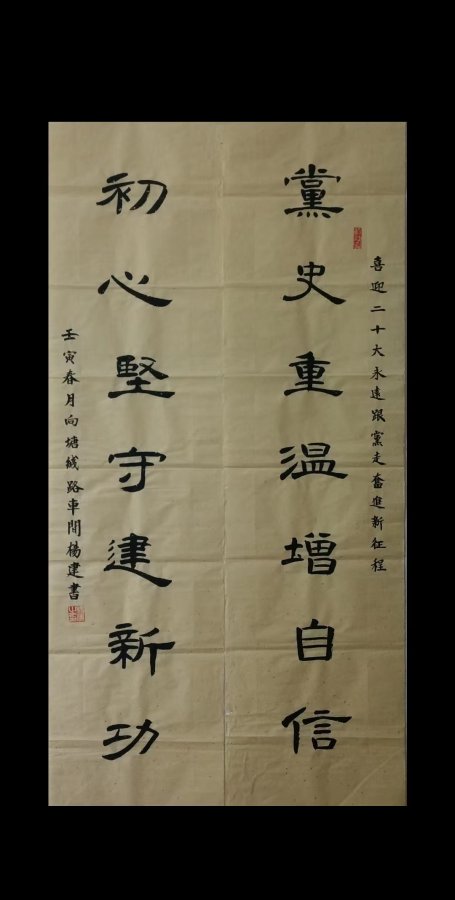 喜迎二十大永遠跟黨走奮進新征程
黨史重温增自信
初心堅守建新功
壬寅春月向塘綫路車間楊建書